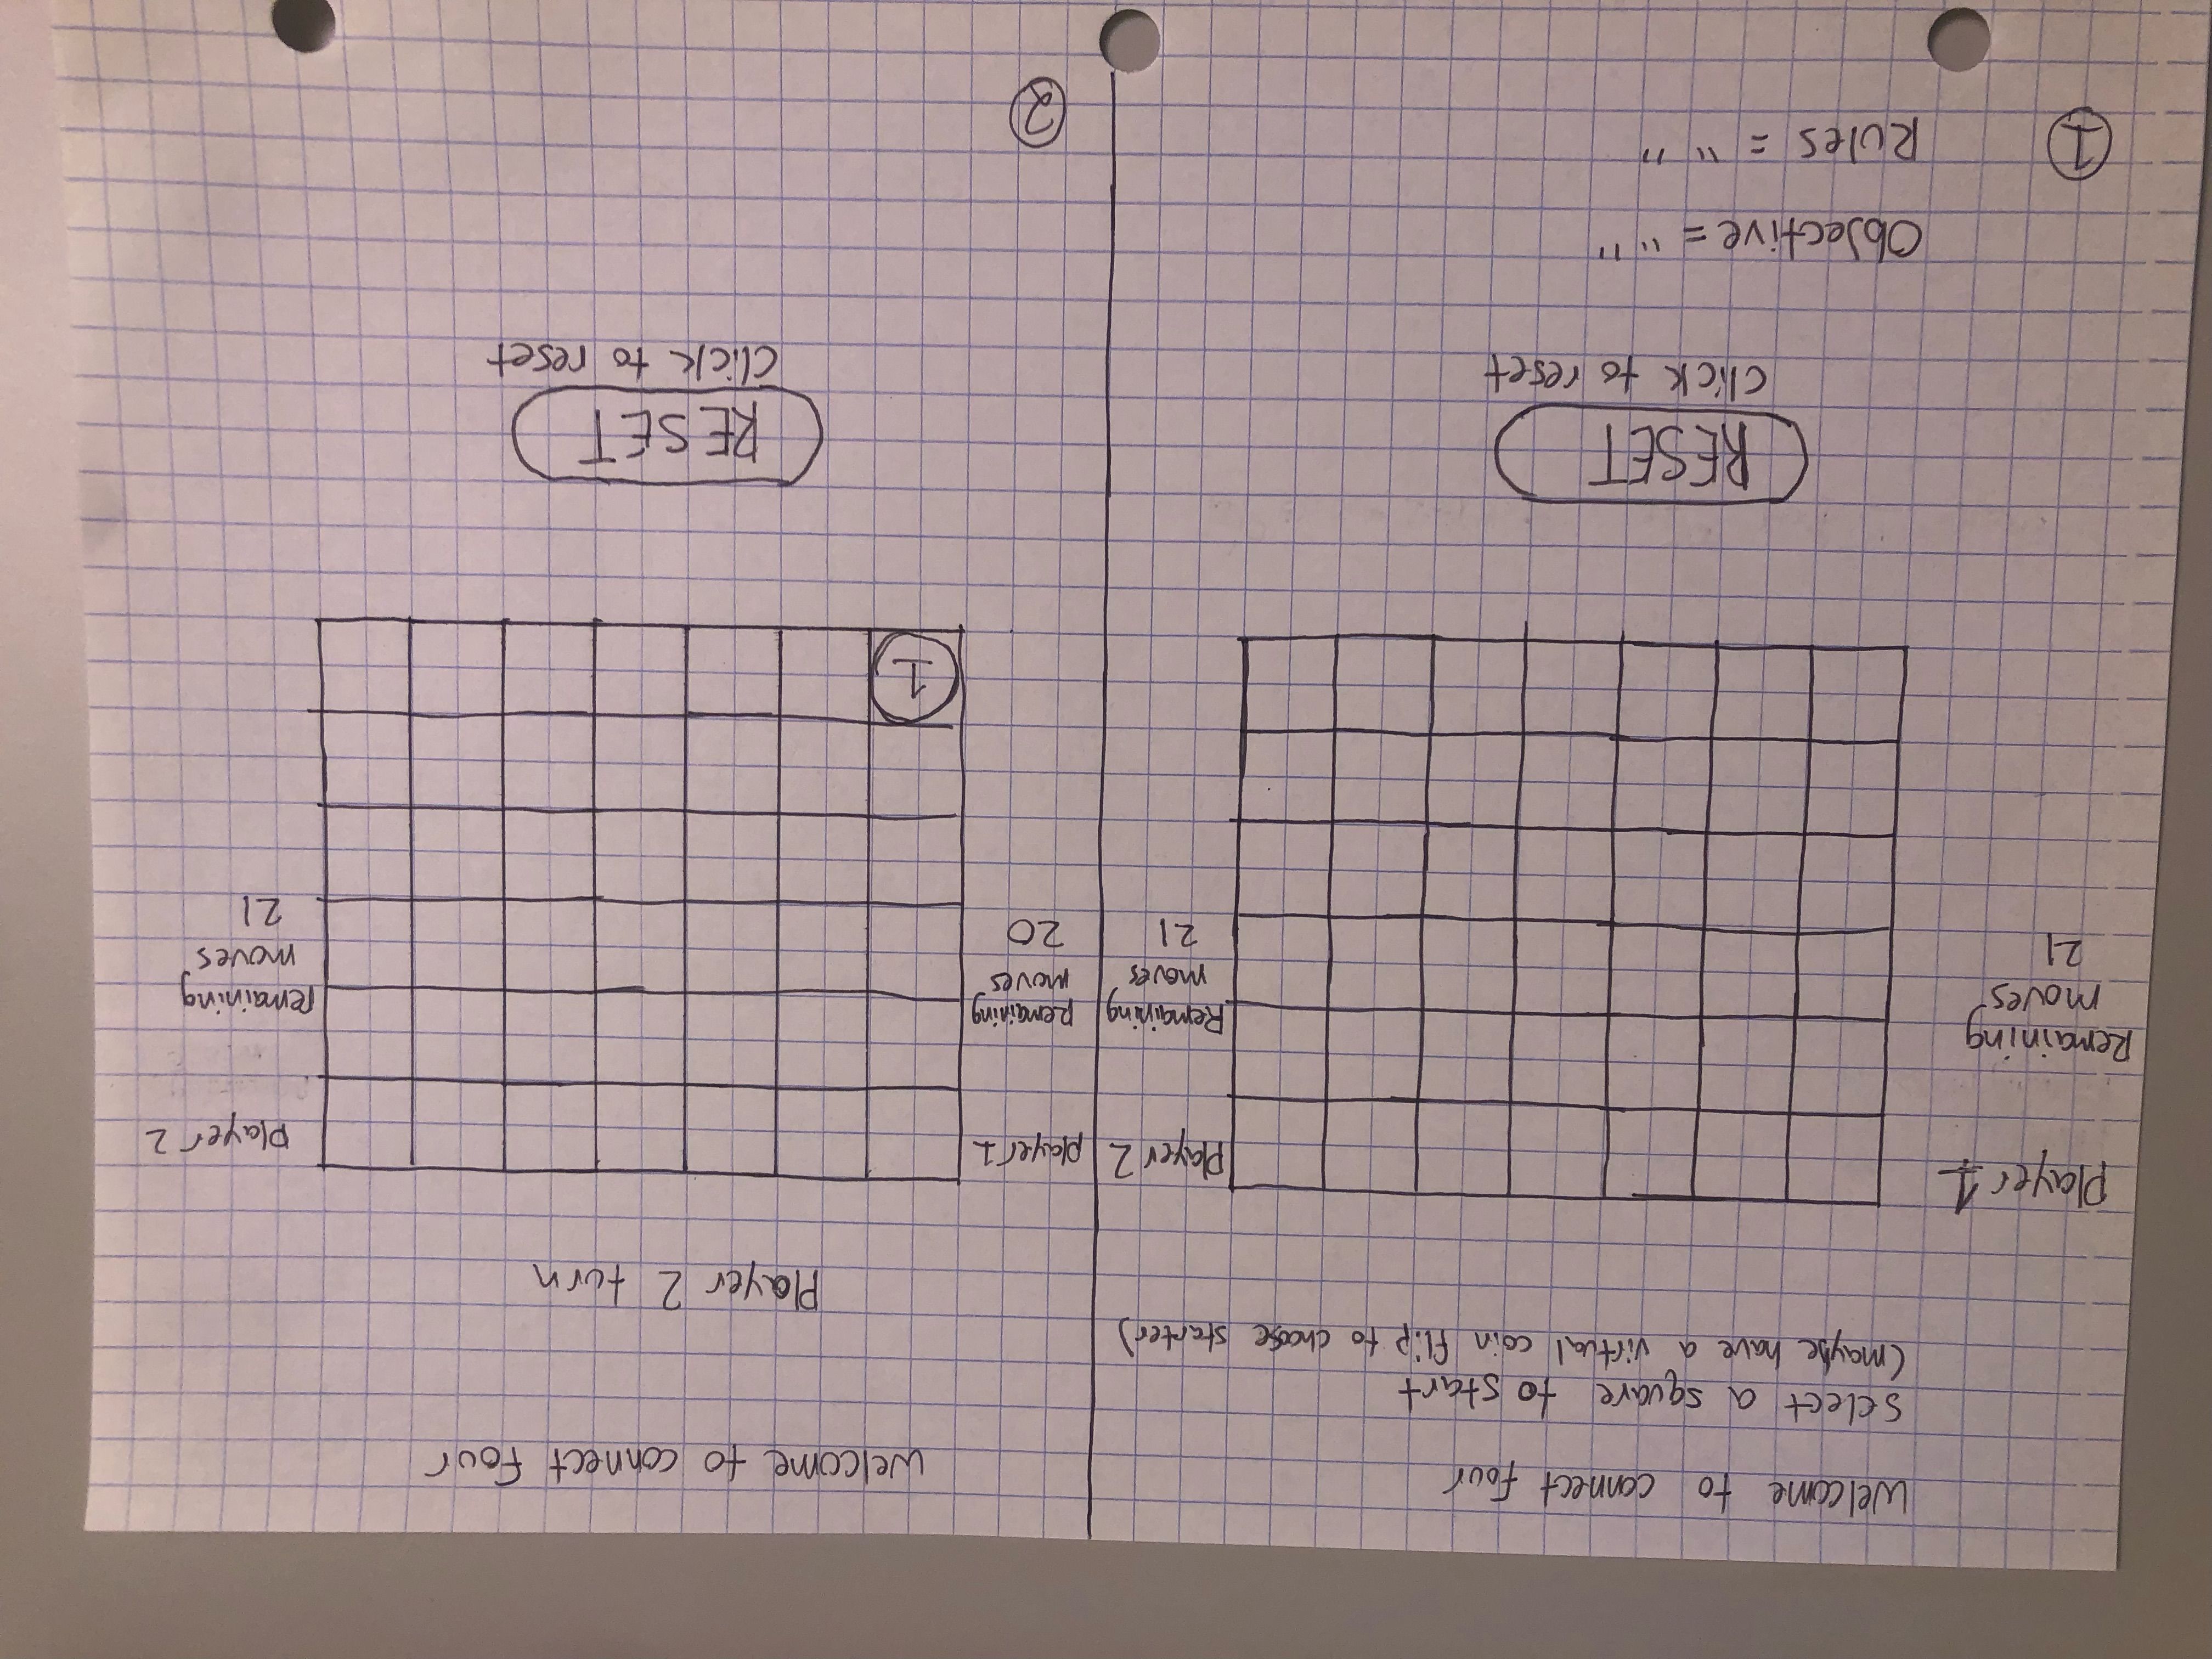 Welcome to connect four
Select a square to start
(maybe have a virtual coin flip to choose starter)
Player 1
Remaining
moves
21
Player 2
Remaining
moves
21
RESET
Click to reset
Objective = " "
Rules = " "
1
Welcome to connect four
Player 2 turn
player 1
remaining
moves
20
1
player 2
remaining
moves
21
RESET
Click to reset
2